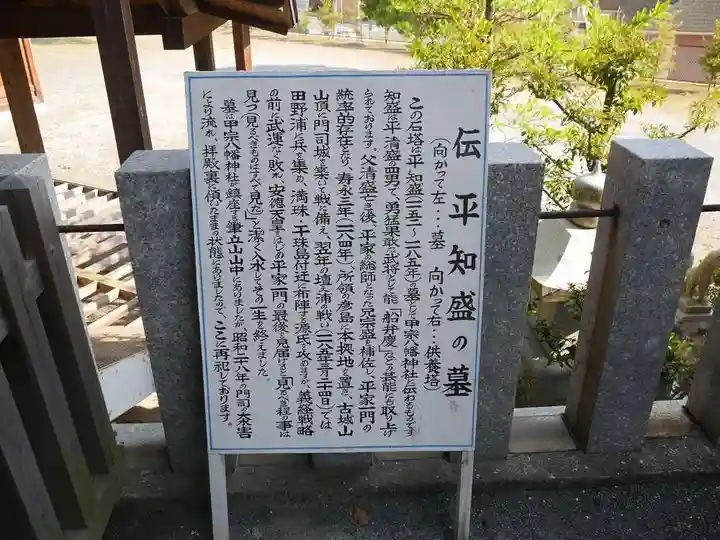 伝 平知盛の墓
(向かって左・・・墓 向かって右・・・供養塔)
この石塔は平知盛(一一五二〜一一八五年)の墓として甲宗八幡神社に伝わるものです
知盛は平清盛四男で、勇猛果敢な武将として能「船弁慶」などの芸能にも取り上げ
られております。父清盛亡き後、平家の総師となった兄宗盛を補佐し、平家一門の
統率的存在となり、寿永三年(一一八四年)、所領の彦島に本拠地を置き、古城山
山頂に門司城を築いて戦に備え、翌年の壇之浦の戦い(一一八五年三月二四日)では
田野浦に兵を集め、満珠・干珠島付近に布陣する源氏を攻めますが、義経戦略
の前に武運なく敗れ、安徳天皇をはじめ平家一門の最後を見届けると「見るべき程の事は
見つ(見るべきものはすべて見た)」と潔く入水してその一生を終えました。
墓は甲宗八幡神社が鎮座する筆立山山中にありましたが、昭和二八年の門司の大水害
により流れ、拝殿裏に傾いたままの状態にありましたので、ここに再祀しております。